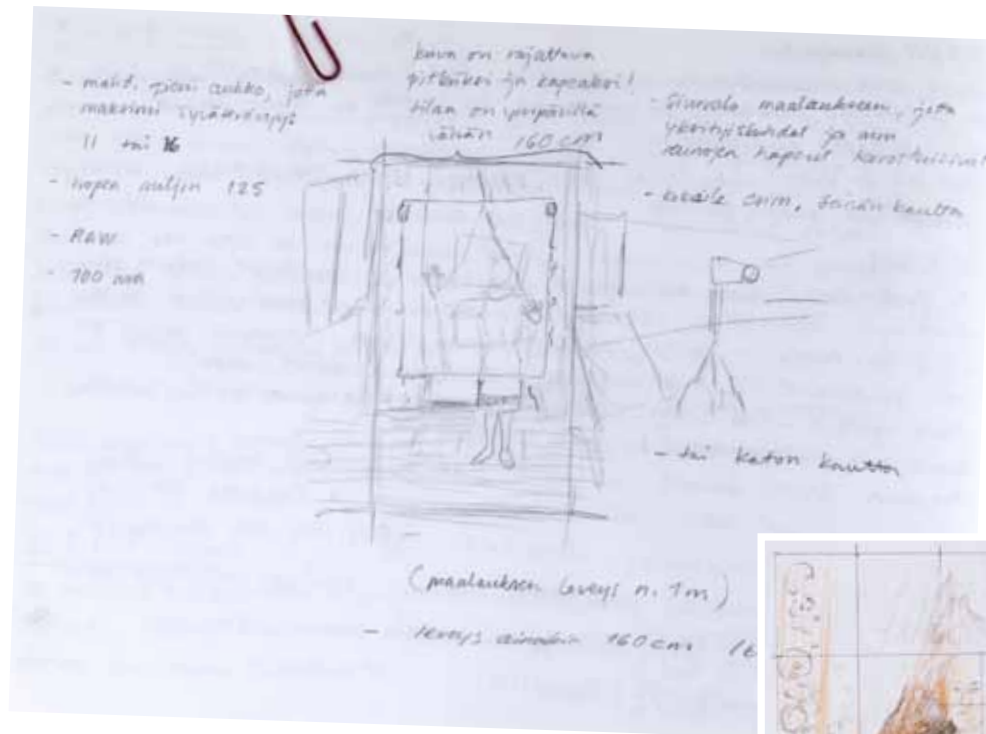 - mahd. pieni aukko, jotta
maksimi syväterävyys
11 tai 16
- nopea suljin 125
- RAW
- 100 mm
kuva on rajattava
pitkäksi ja kapeaksi!
tilaa on ympärillä
vähän
160 cm
- Sivuvalo maalaukseen, jotta
yksityiskohdat ja
reunojen korostuisivat
- seinän kautta
- tai katon kautta
(maalauksen leveys n. 1m)
- leveys 160 cm